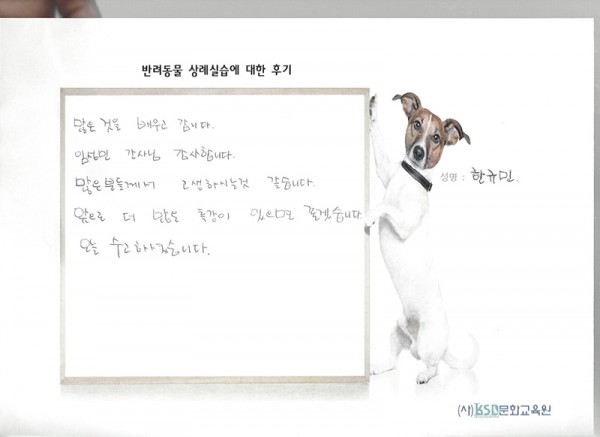 반려동물 상례실습에 대한 후기
많은 것을 배우고 갑니다.
간사님 감사합니다.
많은분들께서 고생하시는것 같습니다.
앞으로 더 많은 특강이 있으면 좋겠습니다
오늘 수고하셨습니다.
성명 : 한규민.
(사)KSD문화교육원